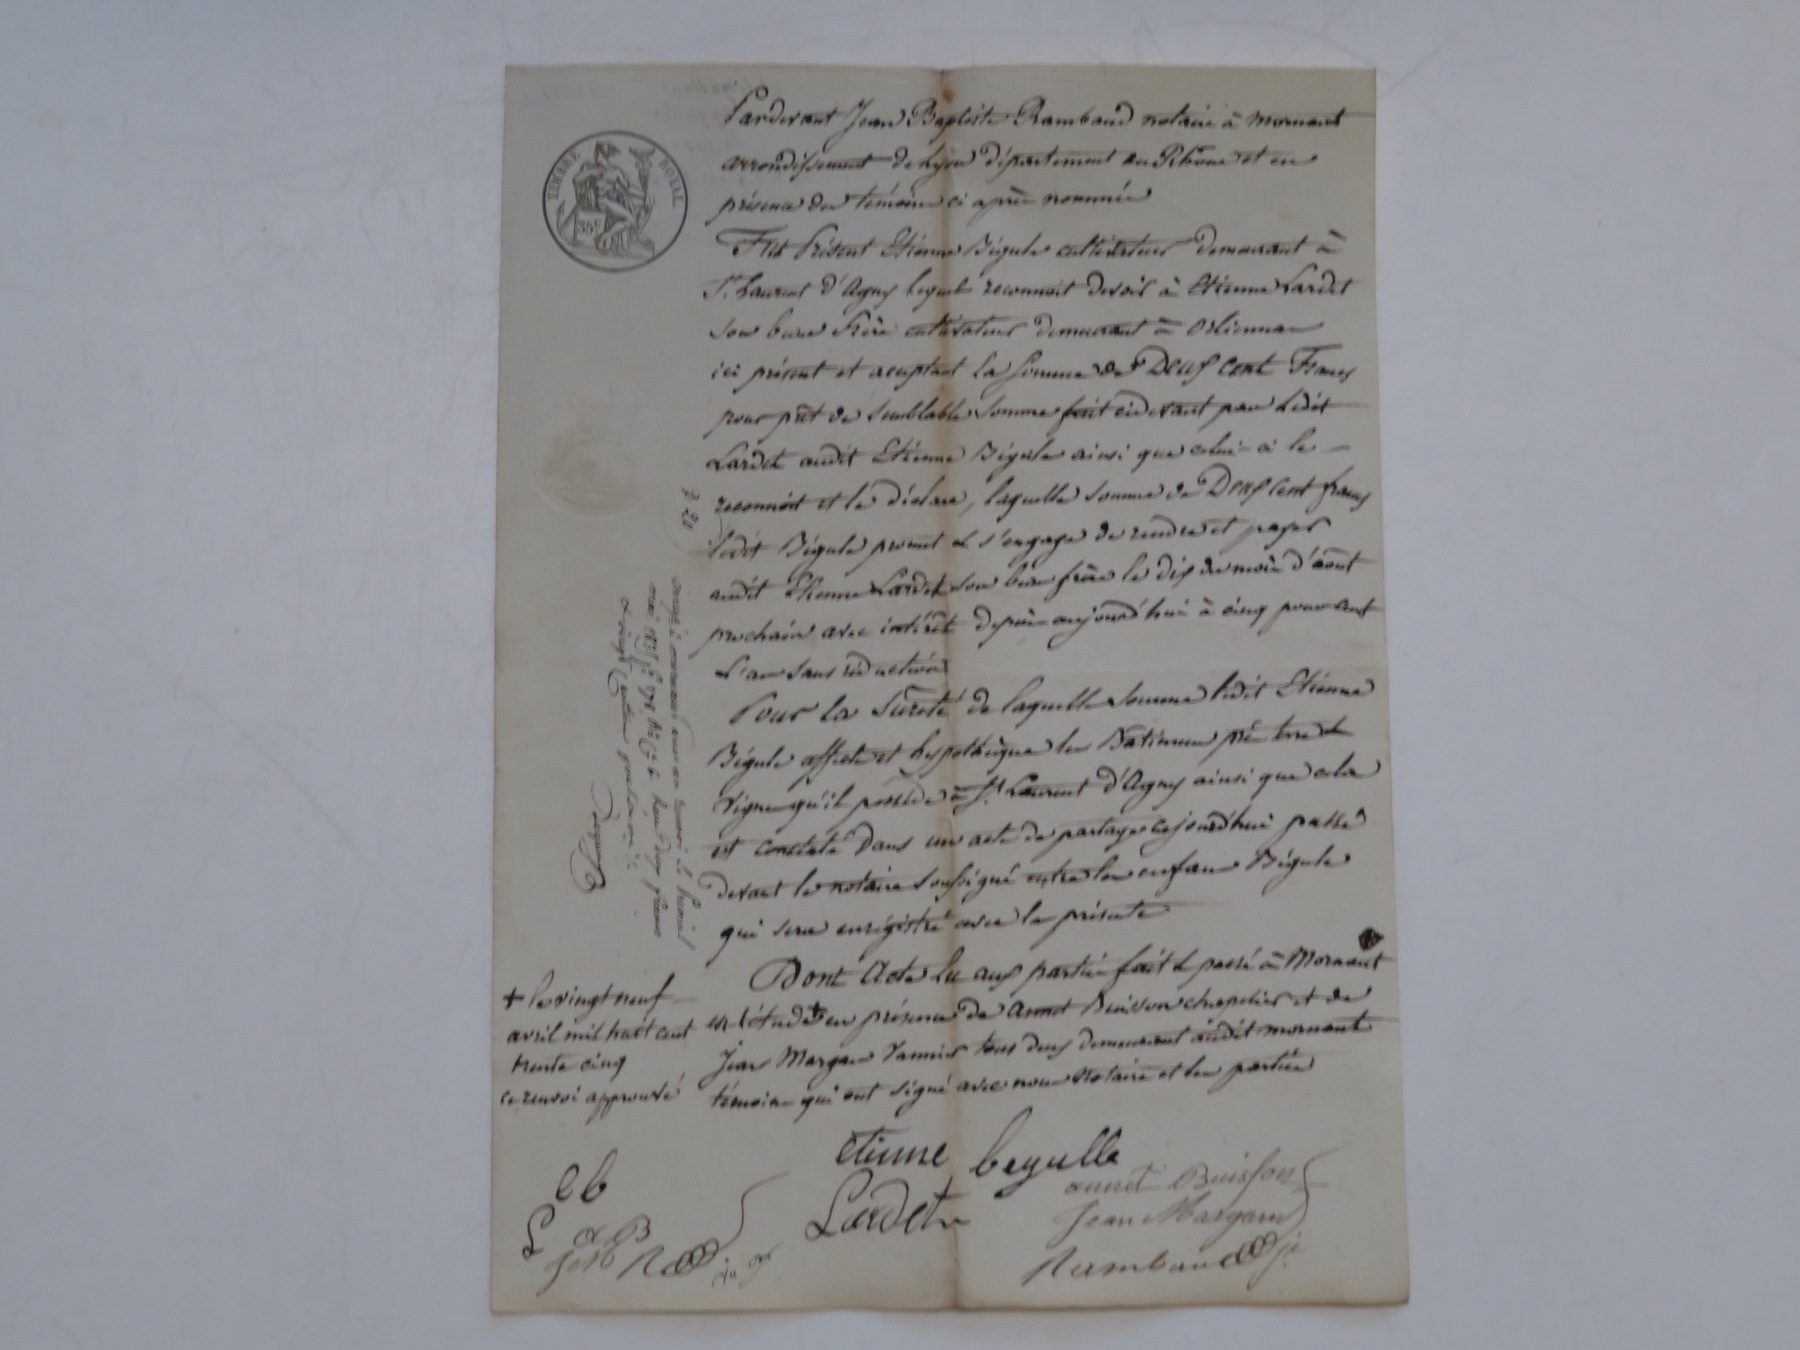 TIMBRE ROYAL
35c
Pardevant Jean Baptiste Rambaud notaire à Mornant
arrondissement de Lyon département du Rhône et en
présence des témoins ci après nommés
Fut Présent Etienne Bégule cultivateur demeurant à
St. Laurent d'Agny lequel reconnoit devoir à Etienne Lardet
son beau frère cultivateur demeurant à Orliennas
ici présent et acceptant la somme de Deux Cent Francs
pour prêt de semblable somme fait cidevant par ledit
Lardet audit Etienne Bégule ainsi que celui-ci le
reconnoit et le déclare, laquelle somme de Deux Cent francs
ledit Bégule promet & s'engage de rendre et payer
audit Etienne Lardet son beau frère le dix du mois d'août
prochain avec intérêt depuis aujourd'hui à cinq pour cent
l'an sans réduction
Pour la Sureté de laquelle somme ledit Etienne
Bégule affecte et hypothèque les Batimens pré terre &
vigne qu'il possède à St. Laurent d'Agny ainsi que cela
est constaté dans un acte de partage cejourd'hui passé
devant le notaire soussigné entre les enfans Bégule
qui sera enrégistré avec la présente
Dont Acte lu aux parties fait & passé à Mornant
en l'étude + en présence de Annet Buisson chapelier et de
Jean Margaron Vannier tous deux demeurant audit mornant
témoins qui ont signé avec nous Notaire et les parties
+ le vingt neuf
avril mil huit cent
trente cinq
ce renvoi approuvé
etienne begulle
Lardet
annet Buisson
Jean Margaron
Rambaud
eb
L
aB
2-20
mai 1835 fo 178 francs